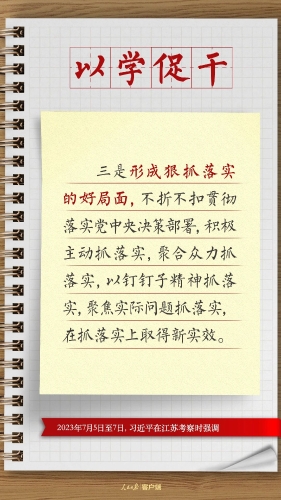 以学促干
三是形成狠抓落实
的好局面,不折不扣贯彻
落实党中央决策部署,积极
主动抓落实,聚合众力抓
落实,以钉钉子精神抓落
实,聚焦实际问题抓落实,
在抓落实上取得新实效。
2023年7月5日至7日,习近平在江苏考察时强调
人民日报 客户端